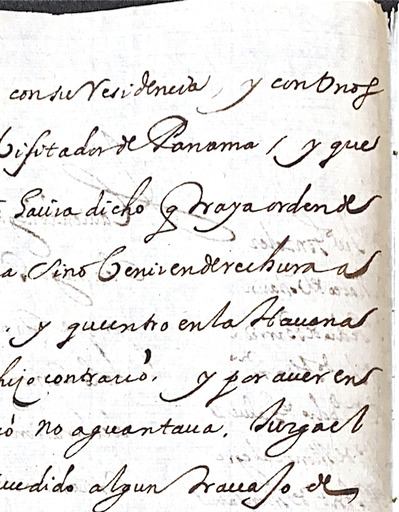 con su Residencia, y con Unos
Visitador de Panama, y que
havia dicho q traya orden de
a, sino Venir en derechura a
. y que entro en la Havana
hijo contrario. y por aver en
ó no aguantava. Juzga el
ucedido algun travajo de